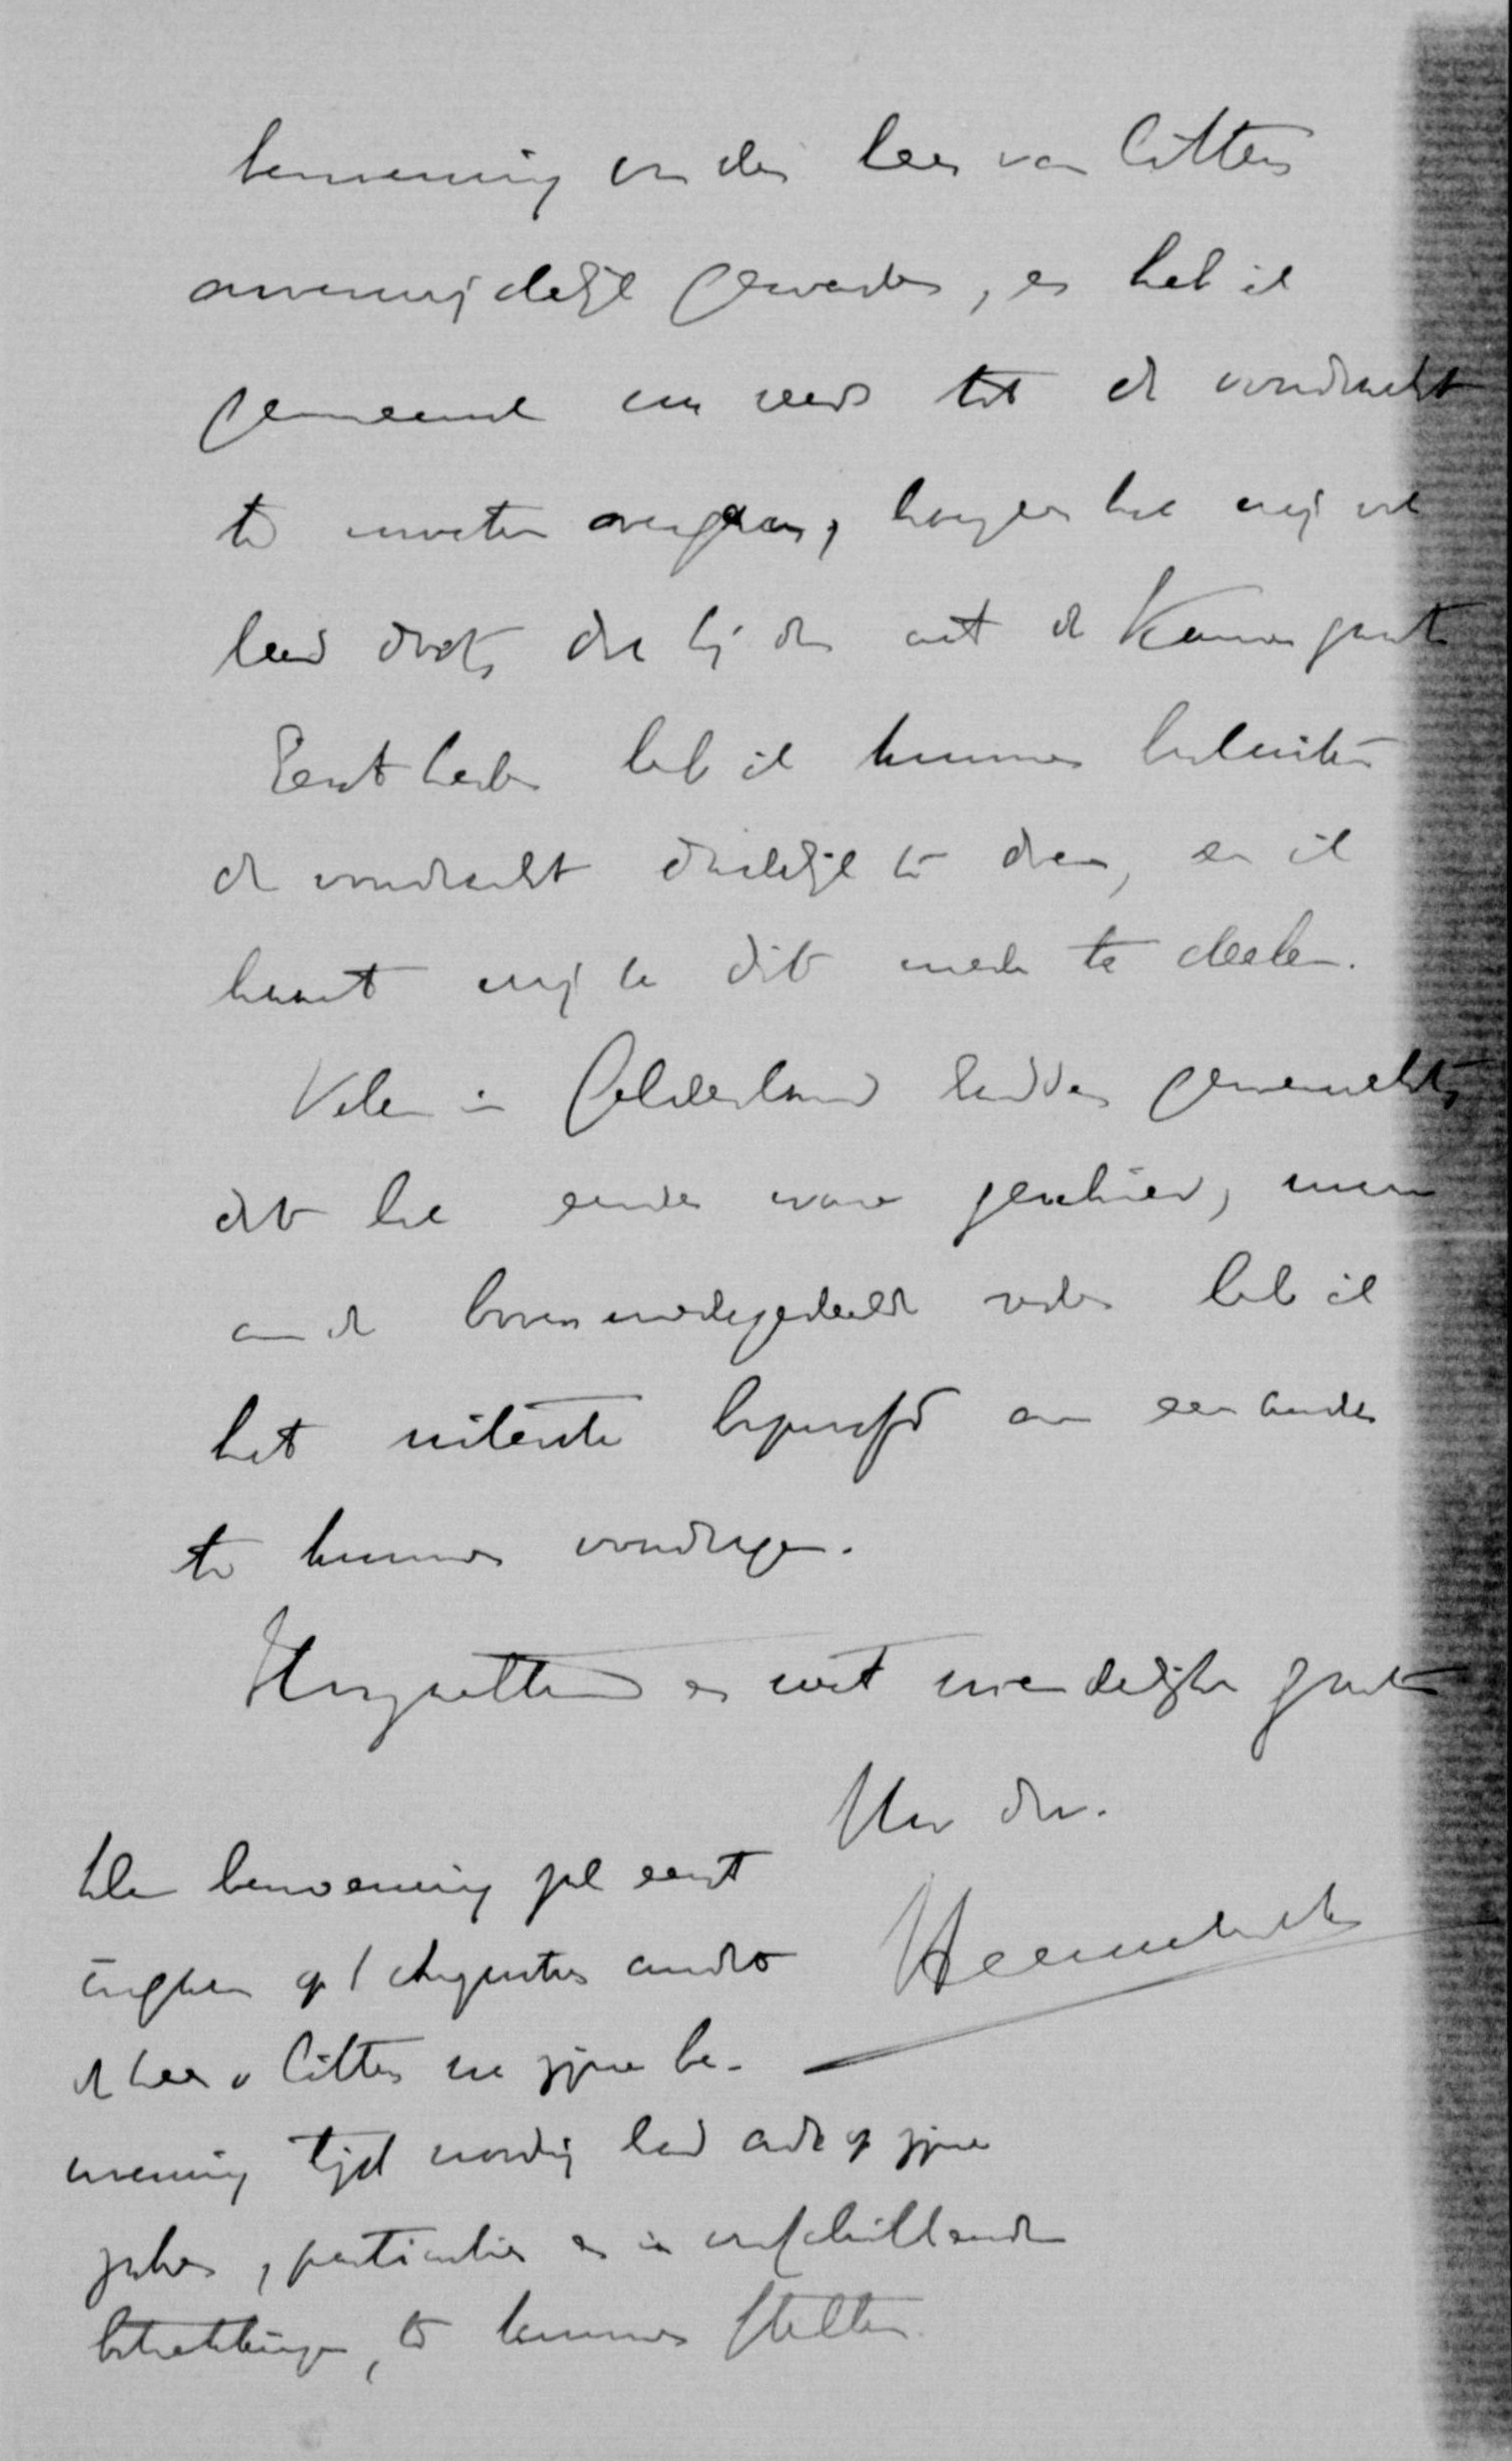 benoeming van den heer van Citters
onvermijdelijk geworden, en heb ik
gemeend nu reeds tot de voordracht
te moeten overgaan, hoezeer het mij ook
leed doet, dat hij dan uit de Kamer gaat
Eerst heden heb ik kunnen besluiten
de voordracht dadelijk te doen, en ik
haast mij U dit mede te deelen.
Velen in Gelderland hadden gewenscht,
dat het eerder ware geschied, maar
om de boven medegedeelde reden heb ik
het uiterste beproefd om een ander
te kunnen voordragen.
Hoogachtend en met vriendelijke groeten
Uw dv.
Heemskerk
De benoeming zal eerst
ingaan op 1 Augustus omdat
de heer v Citters na zijne be-
noeming tijd noodig had orde op zijne
zaken, particulier en in verschillende
betrekkingen, te kunnen stellen.